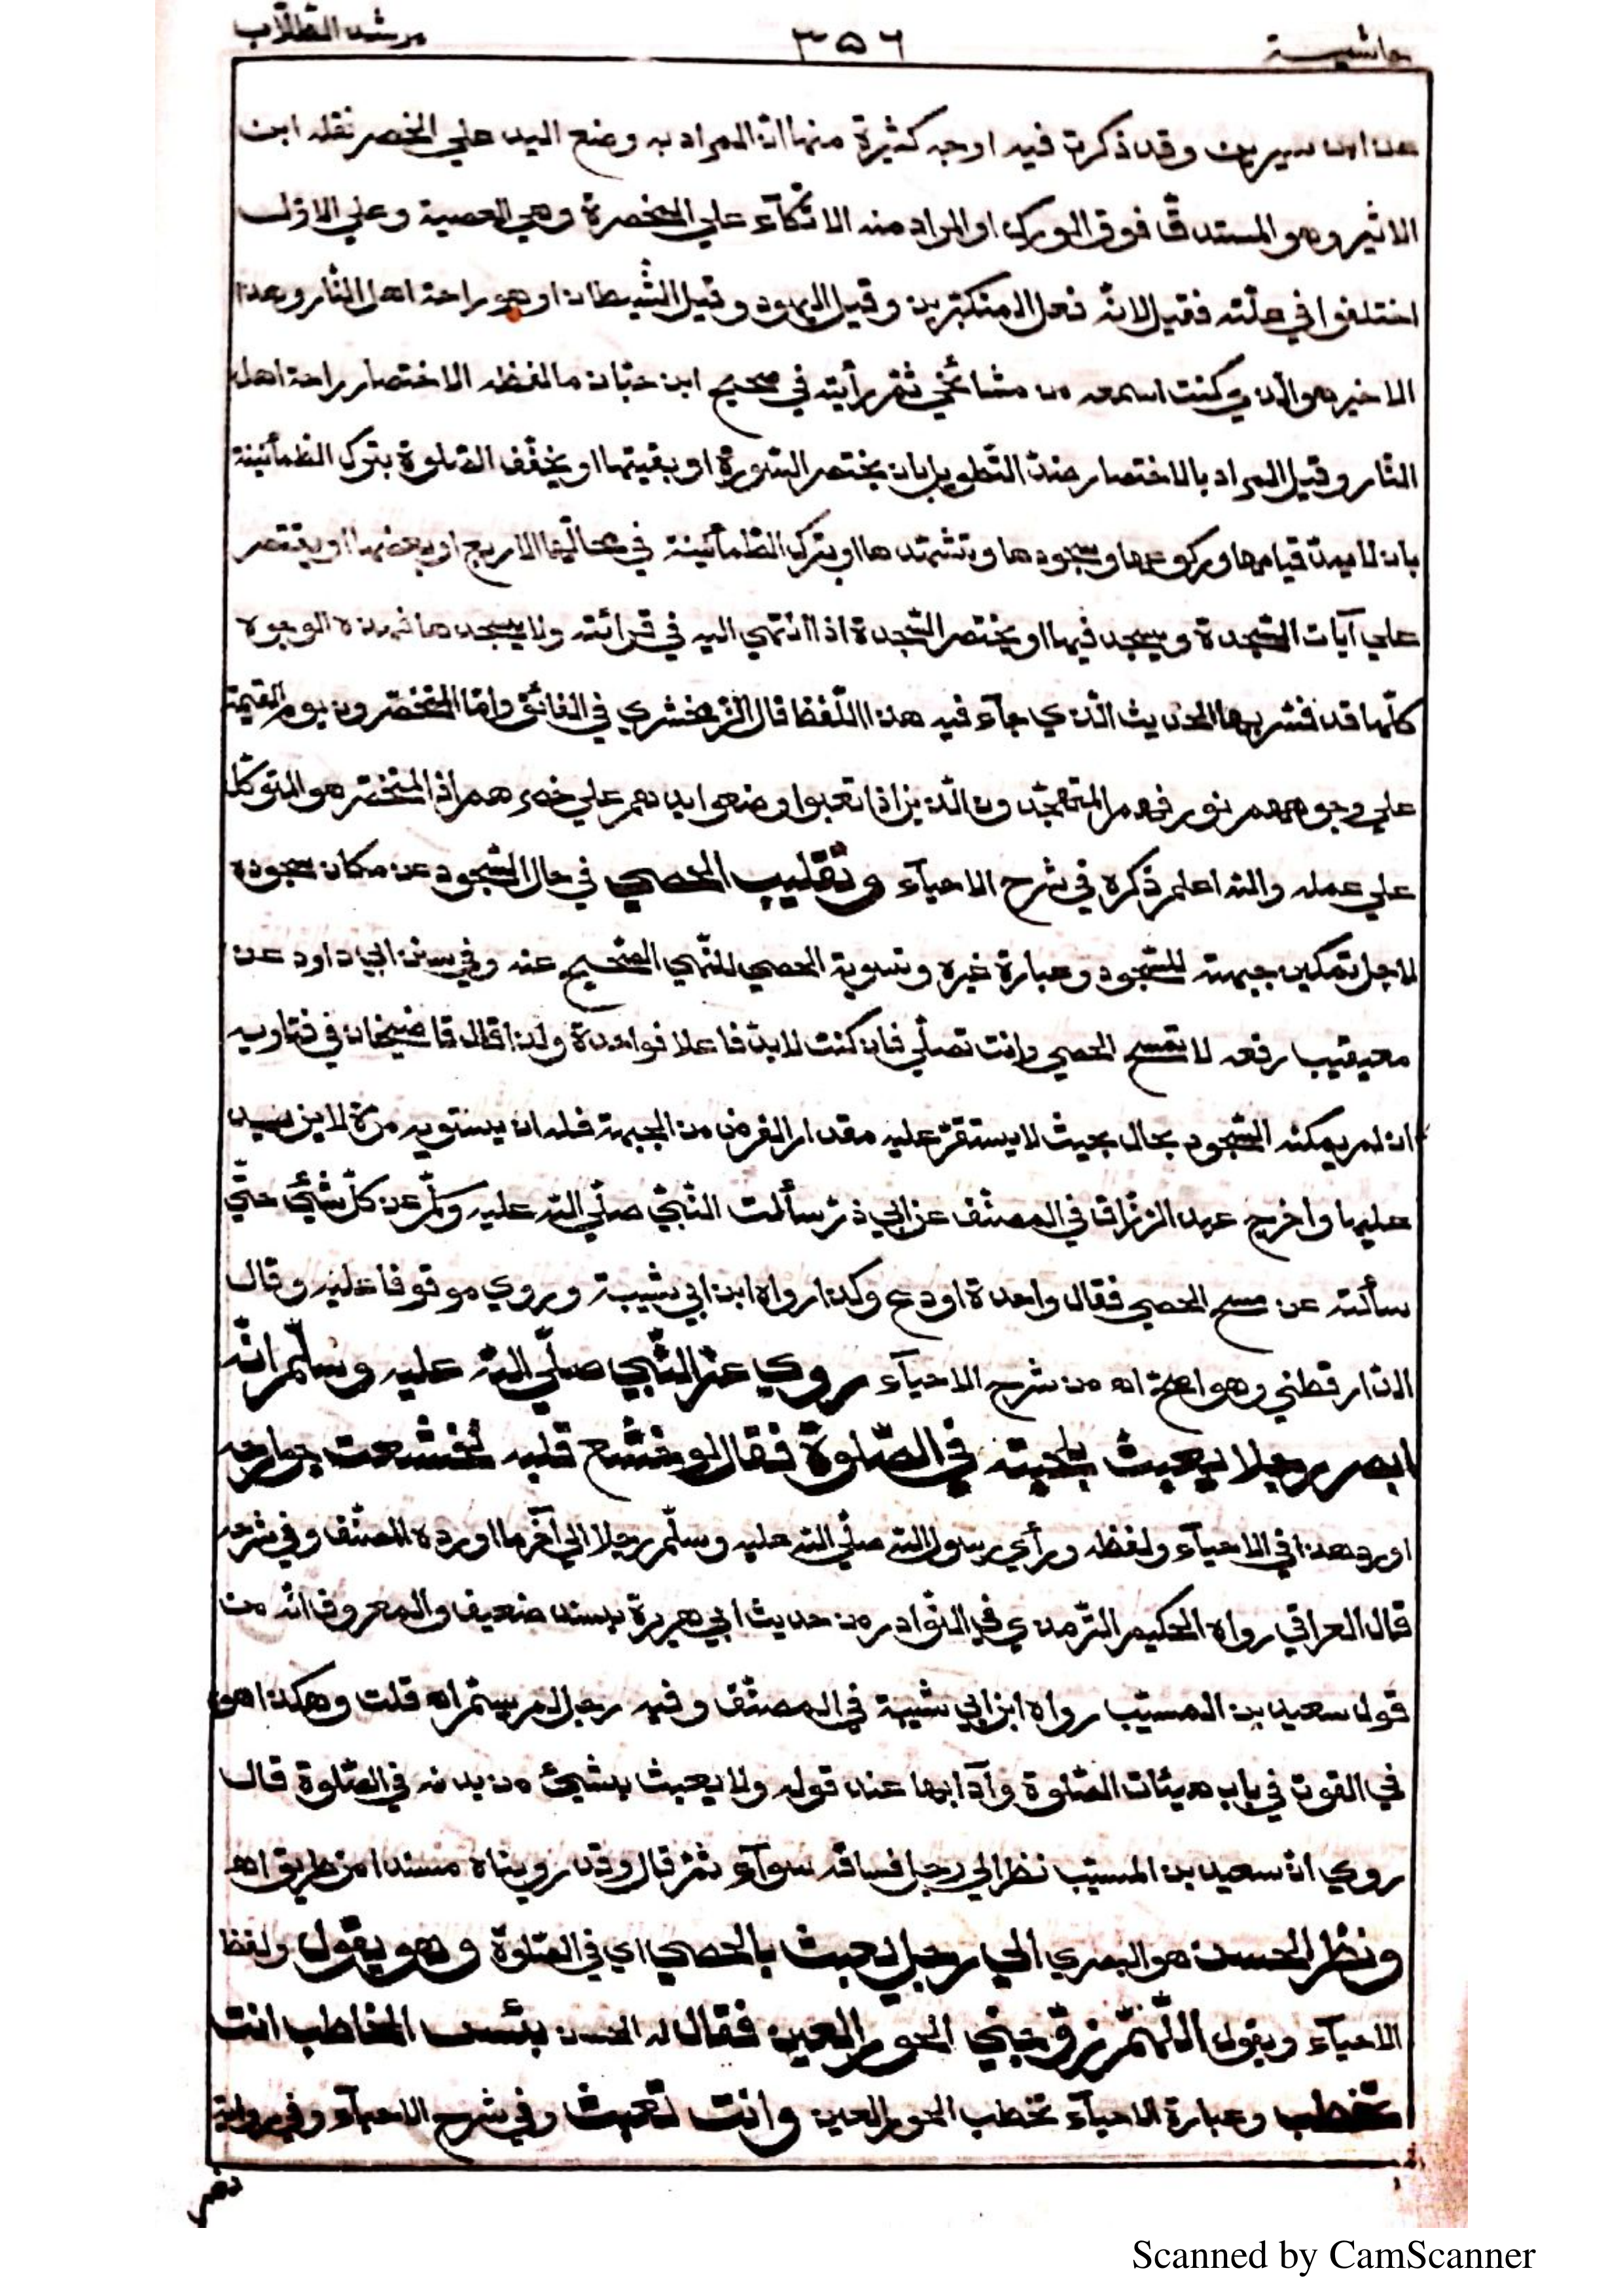 حاشيـــة ٣٥٦ مرشد الطّلّاب
عن ابن سيرين وقد ذكرت فيه اوجه كثيرة منها انّ المراد به وضع اليد علي الخصر نقله ابن
الاثير وهو المستدقّ فوق الورك او المراد منه الاتّكآء علي المخصرة وهي العصية وعلي الاوّل
اختلفوا في علّته فقيل لانّه فعل المتكبّرين وقيل اليهود وقيل الشّيطان او هو راحة اهل النّار وهذا
الاخير هو الّذي كنت اسمعه من مشائخي ثمّ رأيته في صحيح ابن حبّان ما لفظه الاختصار راحة اهل
النّار وقيل المراد بالاختصار ضدّ التّطويل بان يختصر السّورة او بقيتها او يخفّف الصّلوة بترك الطّمأنينة
بان لا يمدّ قيامها وركوعها وسجودها وتشهّدها او بترك الطّمأنينة في محالّها الاربع او بعضها او يقتصر
علي آيات السّجدة ويسجد فيها او يختصر السّجدة اذا انتهي اليه في قرائته ولا يسجدها فهذه الوجوه
كلّها قد فسّر بها الحديث الّذي جآء فيه هذا اللّفظ قال الزّمخشري في الفائق وامّا المتخصّرون يوم القيمة
علي وجوههم نور فهم المتهجّدون الّذين اذا تعبوا وضعوا ايديهم علي خصرهم اذ المتخصّر هو المتوكّل
علي عمله والله اعلم ذكره في شرح الاحيآء وتقليب الحصي في حال السّجود عن مكان سجوده
لاجل تمكين جبهته للسّجود وعبارة غيره وتسوية الحصي للنّهي الصّحيح عنه وفي سنن ابي داود عن
معيقيب رفعه لا تمسح الحصي وانت تصلّي فان كنت لا بدّ فاعلا فواحدة ولذا قال قاضيخان في فتاويه
ان لم يمكنه السّجود بحال بحيث لا يستقرّ عليه مقدار الفرض من الجبهة فله ان يستويه مرّة لا يزيد
عليها واخرج عبد الرّزّاق في المصنّف عن ابي ذرّ سألت النّبيّ صلّي الله عليه وسلّم عن كلّ شيئ حتّي
سألته عن مسح الحصي فقال واحدة او دع وكذا رواه ابن ابي شيبة وروي موقوفا عليه وقال
الدّارقطني وهو اصحّ اه من شرح الاحيآء روي عن النّبي صلّي الله عليه وسلّم انّه
ابصر رجلا يعبث بلحيته في الصّلوة فقال لو خشع قلبه لخشعت جوارحه
اورد هذا في الاحيآء ولفظه ورأي رسول الله صلّي الله عليه وسلّم رجلا الي آخر ما اورده المصنّف وفي شرحه
قال العراقي رواه الحكيم التّرمذي في النّوادر من حديث ابي هريرة بسند ضعيف والمعروف انّه من
قول سعيد بن المسيّب رواه ابن ابي شيبة في المصنّف وفيه رجل لم يسمّ اه قلت وهكذا هو
في القوت في باب هيئات الصّلوة وآدابها عند قوله ولا يعبث بشيئ من بدنه في الصّلوة قال
روي انّ سعيد بن المسيّب نظر الي رجل فساقه سوآء ثمّ قال وقد رويناه مسندا من طريق اه
ونظر الحسن هو البصري الي رجل يعبث بالحصي اي في الصّلوة وهو يقول ولفظ
الاحيآء ويقول اللّهمّ زوّجني الحور العين فقال له الحسن بئس الخاطب انت
تخطب وعبارة الاحيآء تخطب الحور العين وانت تعبث وفي شرح الاحيآء وفي رواية
Scanned by CamScanner